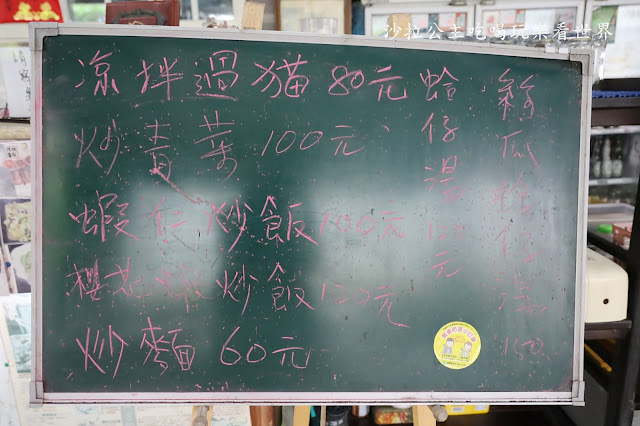 沙拉公主吃喝玩樂看世界
凉拌過猫80元
炒青菜100元
蝦仁炒飯100元
櫻花蝦炒飯120元
炒麵60元
蛤仔湯120元
絲瓜蛤仔湯150